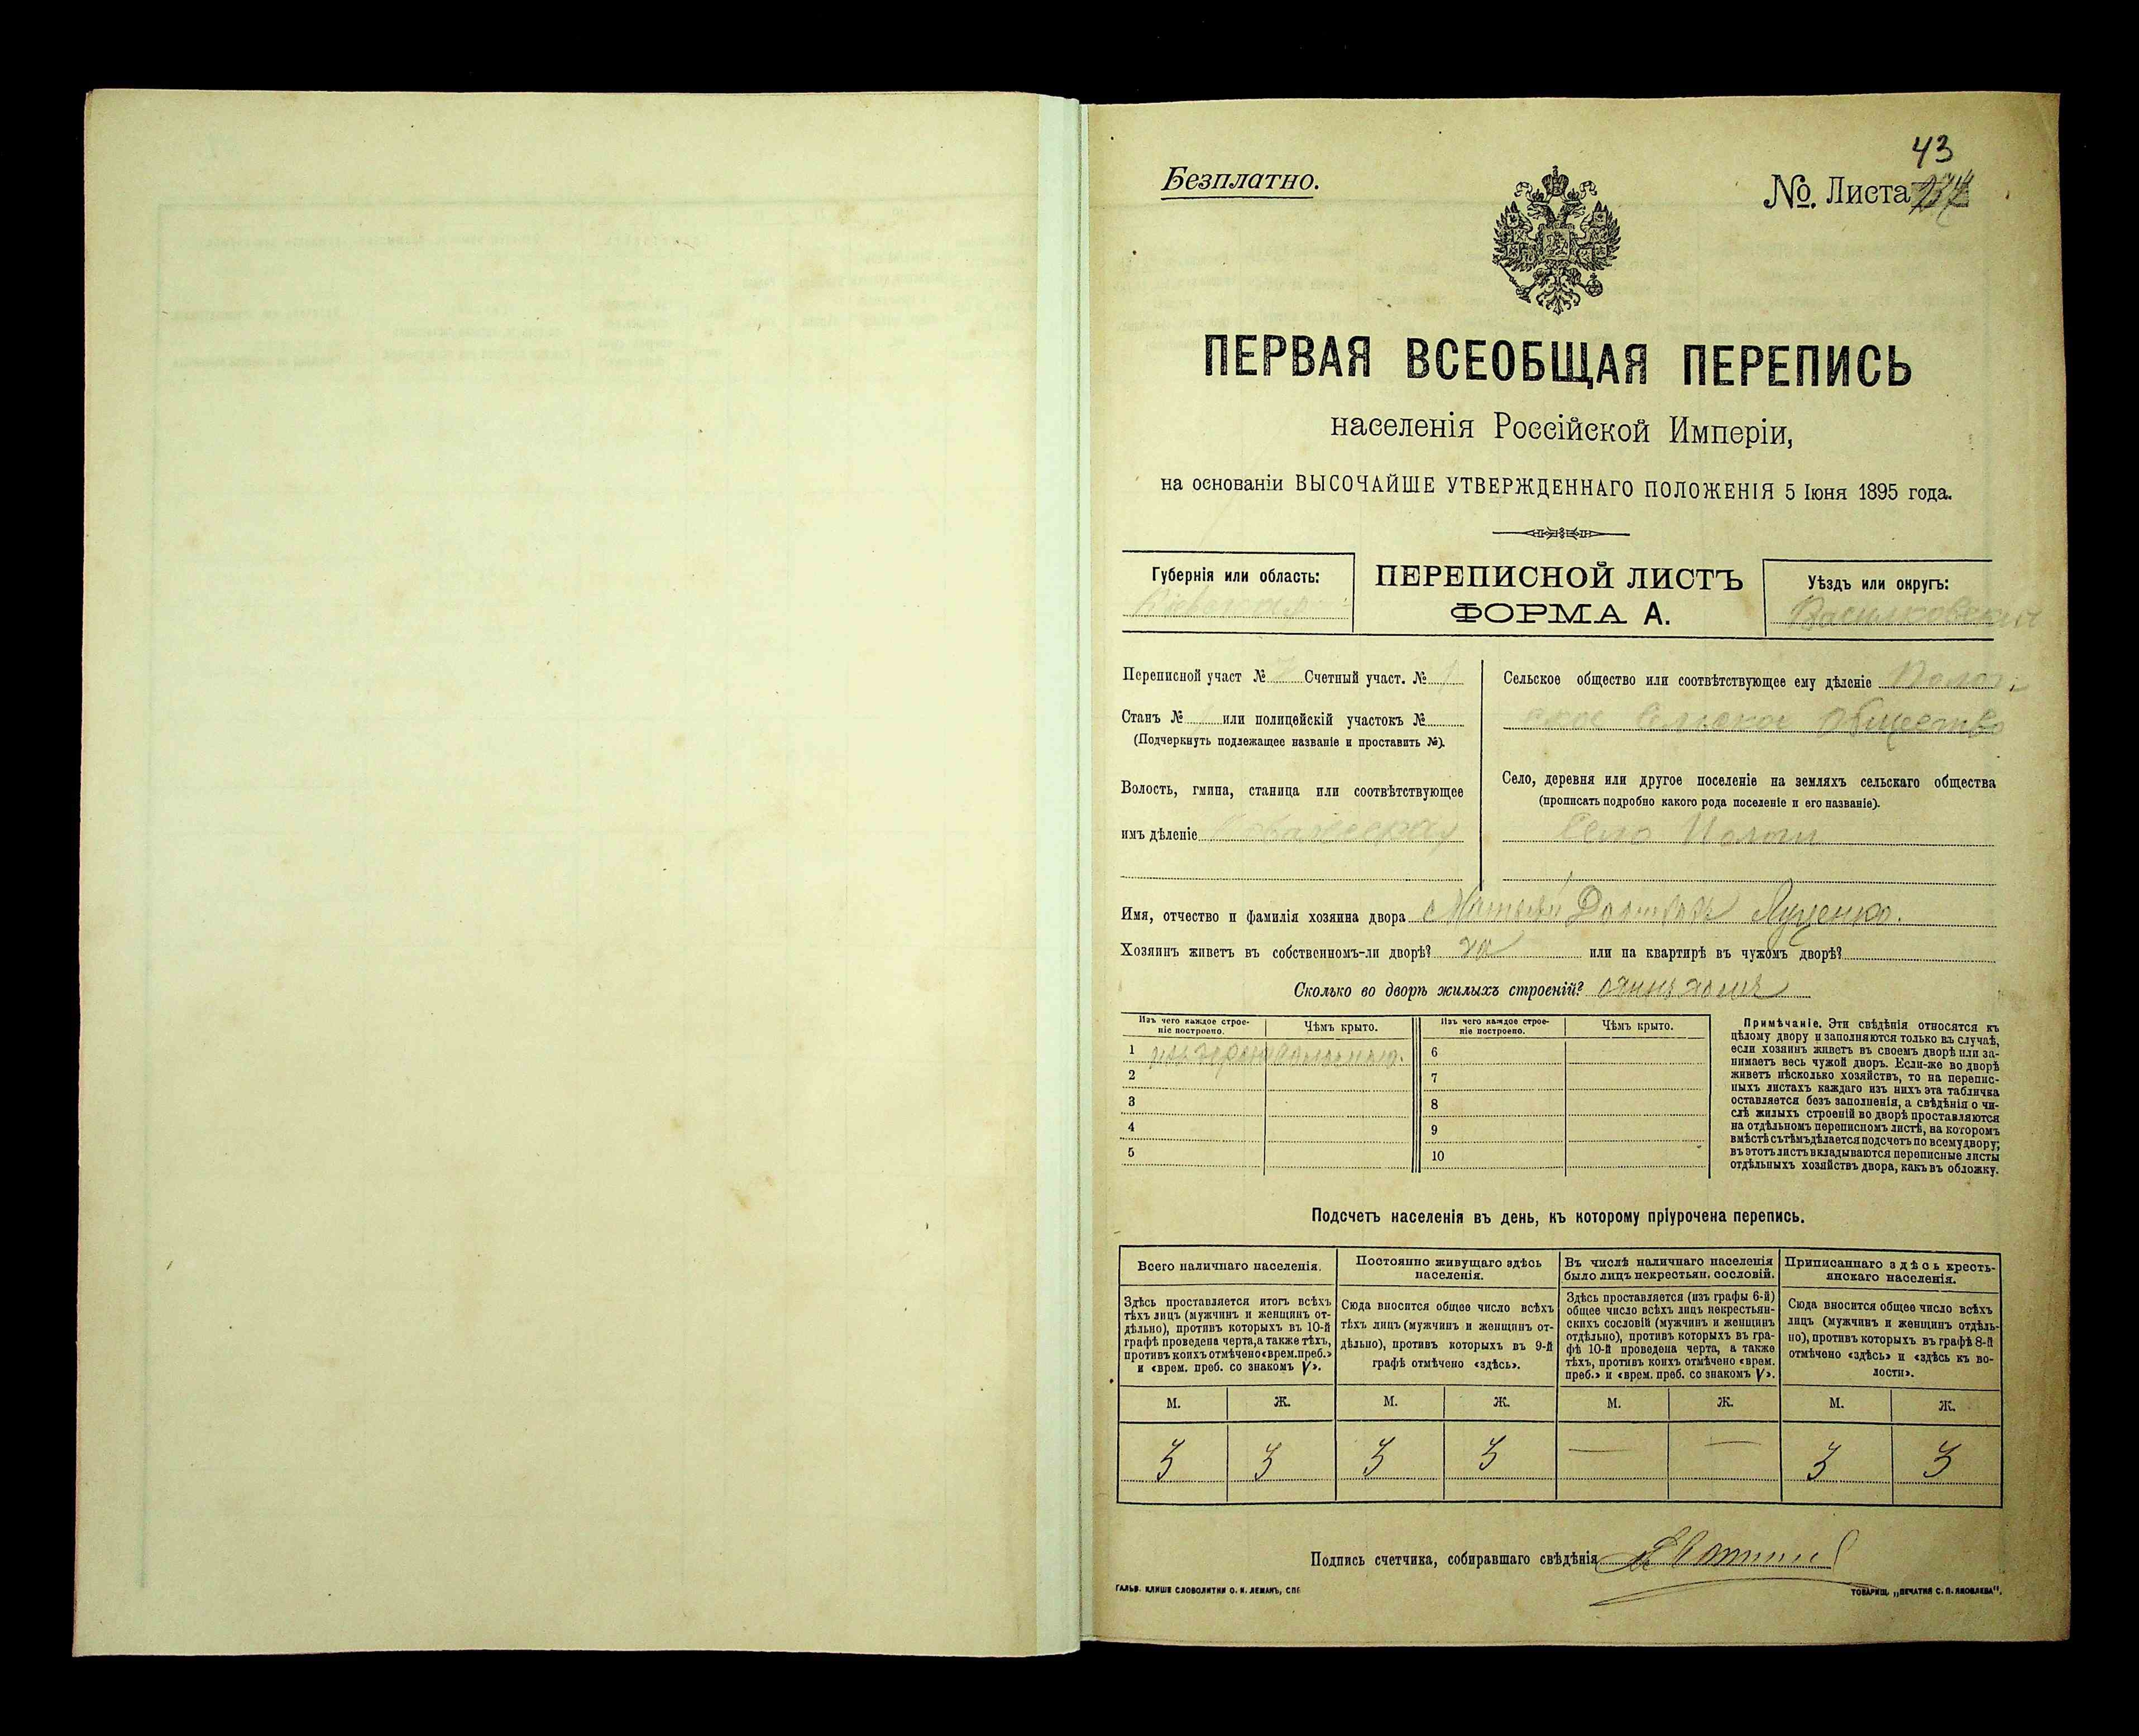 43
Безплатно.
№. Листа
ПЕРВАЯ ВСЕОБЩАЯ ПЕРЕПИСЬ
населенія Россійской Имперіи,
на основаніи ВЫСОЧАЙШЕ УТВЕРЖДЕННАГО ПОЛОЖЕНІЯ 5 Іюня 1895 года.
Губернія или область:
Кіевская
ПЕРЕПИСНОЙ ЛИСТЪ
ФОРМА А.
Уѣздъ или округъ:
Васильковскій
Переписной участ № 7 Счетный участ. № 1
Станъ № или полицейскій участокъ №
(Подчеркнуть подлежащее названіе и проставить №).
Волость, гмина, станица или соотвѣтствующее
имъ дѣленіе
Сельское общество или соотвѣтствующее ему дѣленіе
ское Сельское Общество
Село, деревня или другое поселеніе на земляхъ сельскаго общества
(прописать подробно какого рода поселеніе и его названіе).
Село Пологи
Имя, отчество и фамилія хозяина двора Матвѣй Луценко.
Хозяинъ живетъ въ собственномъ-ли дворѣ? да или на квартирѣ въ чужомъ дворѣ?
Сколько во дворѣ жилыхъ строеній? одинъ домъ
Изъ чего каждое строе-
ніе построено.
Чѣмъ крыто.
Изъ чего каждое строе-
ніе построено.
Чѣмъ крыто.
1 изъ дерева соломою. 6
2 7
3 8
4 9
5 10
Примѣчаніе. Эти свѣдѣнія относятся къ
цѣлому двору и заполняются только въ случаѣ,
если хозяинъ живетъ въ своемъ дворѣ или за-
нимаетъ весь чужой дворъ. Если-же во дворѣ
живетъ нѣсколько хозяйствъ, то на перепис-
ныхъ листахъ каждаго изъ нихъ эта табличка
оставляется безъ заполненія, а свѣдѣнія о чи-
слѣ жилыхъ строеній во дворѣ проставляются
на отдѣльномъ переписномъ листѣ, на которомъ
вмѣстѣ съ тѣмъ дѣлается подсчетъ по всему двору;
въ этотъ листъ вкладываются переписные листы
отдѣльныхъ хозяйствъ двора, какъ въ обложку.
Подсчетъ населенія въ день, къ которому пріурочена перепись.
Всего наличнаго населенія.
Здѣсь проставляется итогъ всѣхъ
тѣхъ лицъ (мужчинъ и женщинъ от-
дѣльно), противъ которыхъ въ 10-й
графѣ проведена черта, а также тѣхъ,
противъ коихъ отмѣчено «врем. преб.»
и «врем. преб. со знакомъ V».
Постоянно живущаго здѣсь
населенія.
Сюда вносится общее число всѣхъ
тѣхъ лицъ (мужчинъ и женщинъ от-
дѣльно), противъ которыхъ въ 9-й
графѣ отмѣчено «здѣсь».
Въ числѣ наличнаго населенія
было лицъ некрестьян. сословій.
Здѣсь проставляется (изъ графы 6-й)
общее число всѣхъ лицъ некрестьян-
скихъ сословій (мужчинъ и женщинъ
отдѣльно), противъ которыхъ въ гра-
фѣ 10-й проведена черта, а также
тѣхъ, противъ коихъ отмѣчено «врем.
преб.» и «врем. преб. со знакомъ V».
Приписаннаго здѣсь кресть-
янскаго населенія.
Сюда вносится общее число всѣхъ
лицъ (мужчинъ и женщинъ отдѣль-
но), противъ которыхъ въ графѣ 8-й
отмѣчено «здѣсь» и «здѣсь къ во-
лости».
М. Ж. М. Ж. М. Ж. М. Ж.
3 3 3 3 — — 3 3
Подпись счетчика, собиравшаго свѣдѣнія
ГАЛЬВ. КЛИШЕ СЛОВОЛИТНИ О. И. ЛЕМАНЪ, СПБ
ТОВАРИЩ. „ПЕЧАТНЯ С. П. ЯКОВЛЕВА".